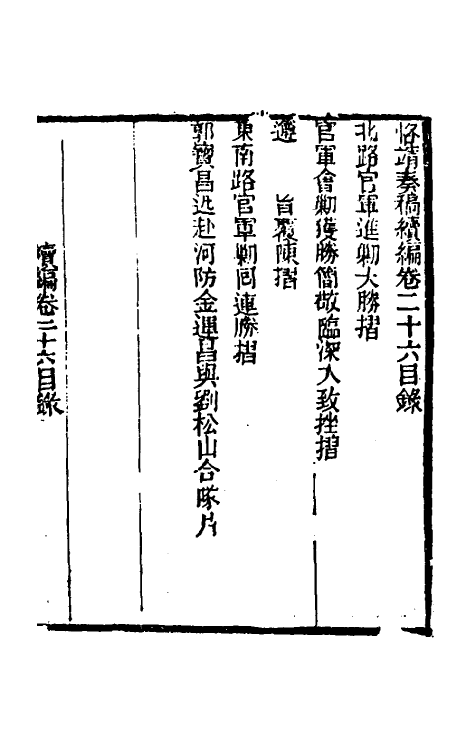 恪靖奏稿續編卷二十六目錄
北路官軍進勦大勝摺
官軍會勦獲勝簡敬臨深入致挫摺
遵　旨覆陳摺
東南路官軍勦回連勝摺
郭寶昌迅赴河防金運昌與劉松山合隊片
續編卷二十六目錄